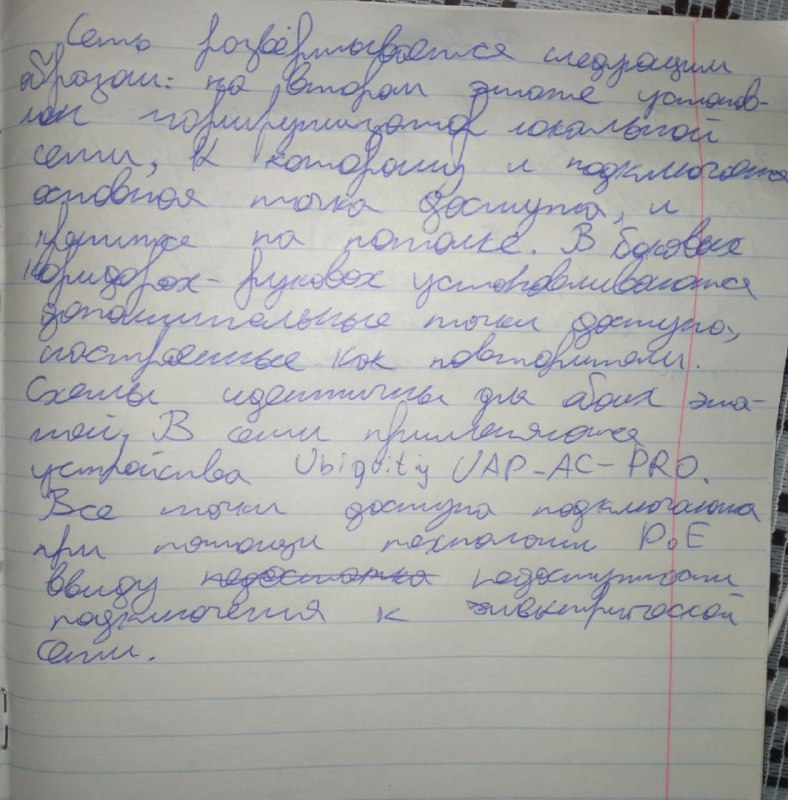 Сеть развёртывается следующим
образом: на втором этаже установ-
лен маршрутизатор локальной
сети, к которому и подключается
основная точка доступа, и
на потолке. В боковых
коридорах-рукавах устанавливаются
дополнительные точки доступа,
настроенные как повторители.
Схемы идентичны для обоих эта-
жей. В сети применяются
устройства Ubiquitiy UAP-AC-PRO.
Все точки доступа подключаются
при помощи технологии PoE
ввиду недостатка недоступности
подключения к электрической
сети.